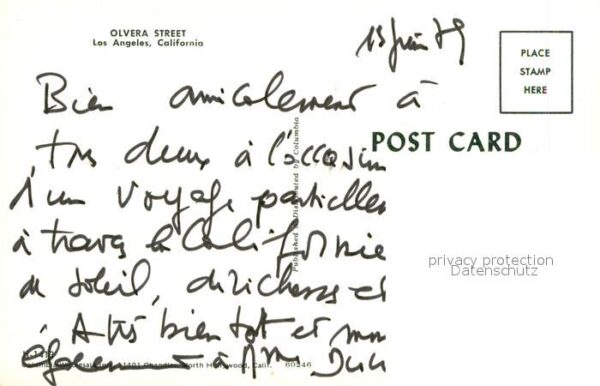 OLVERA STREET
Los Angeles, California
13 juin 79
PLACE
STAMP
HERE
POST CARD
Bien amicalement à
tous deux à l'occasion
d'un voyage
à travers la Californie
de soleil, de richesses et
A très bientôt et mon
à Mme
Published & Distributed by Columbia
North Hollywood, Calif. 60246
privacy protection
Datenschutz